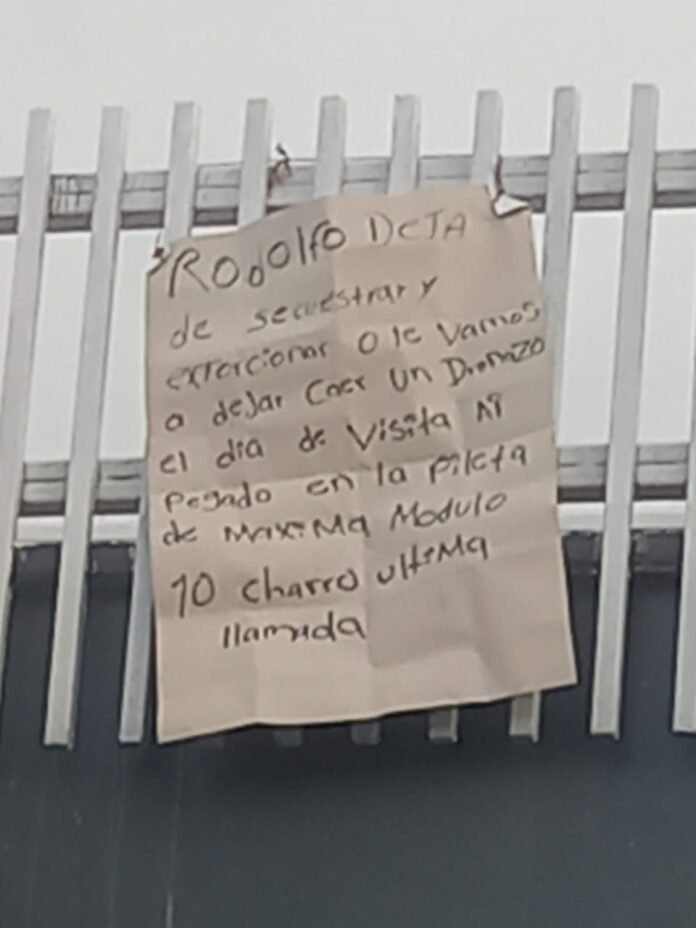 Rodolfo DeJA
de secuestrar y
extorcionar o le vamos
a dejar caer un Dronazo
el dia de visita ai
pegado en la pileta
de maxima Modulo
10 charro ultima
llamada